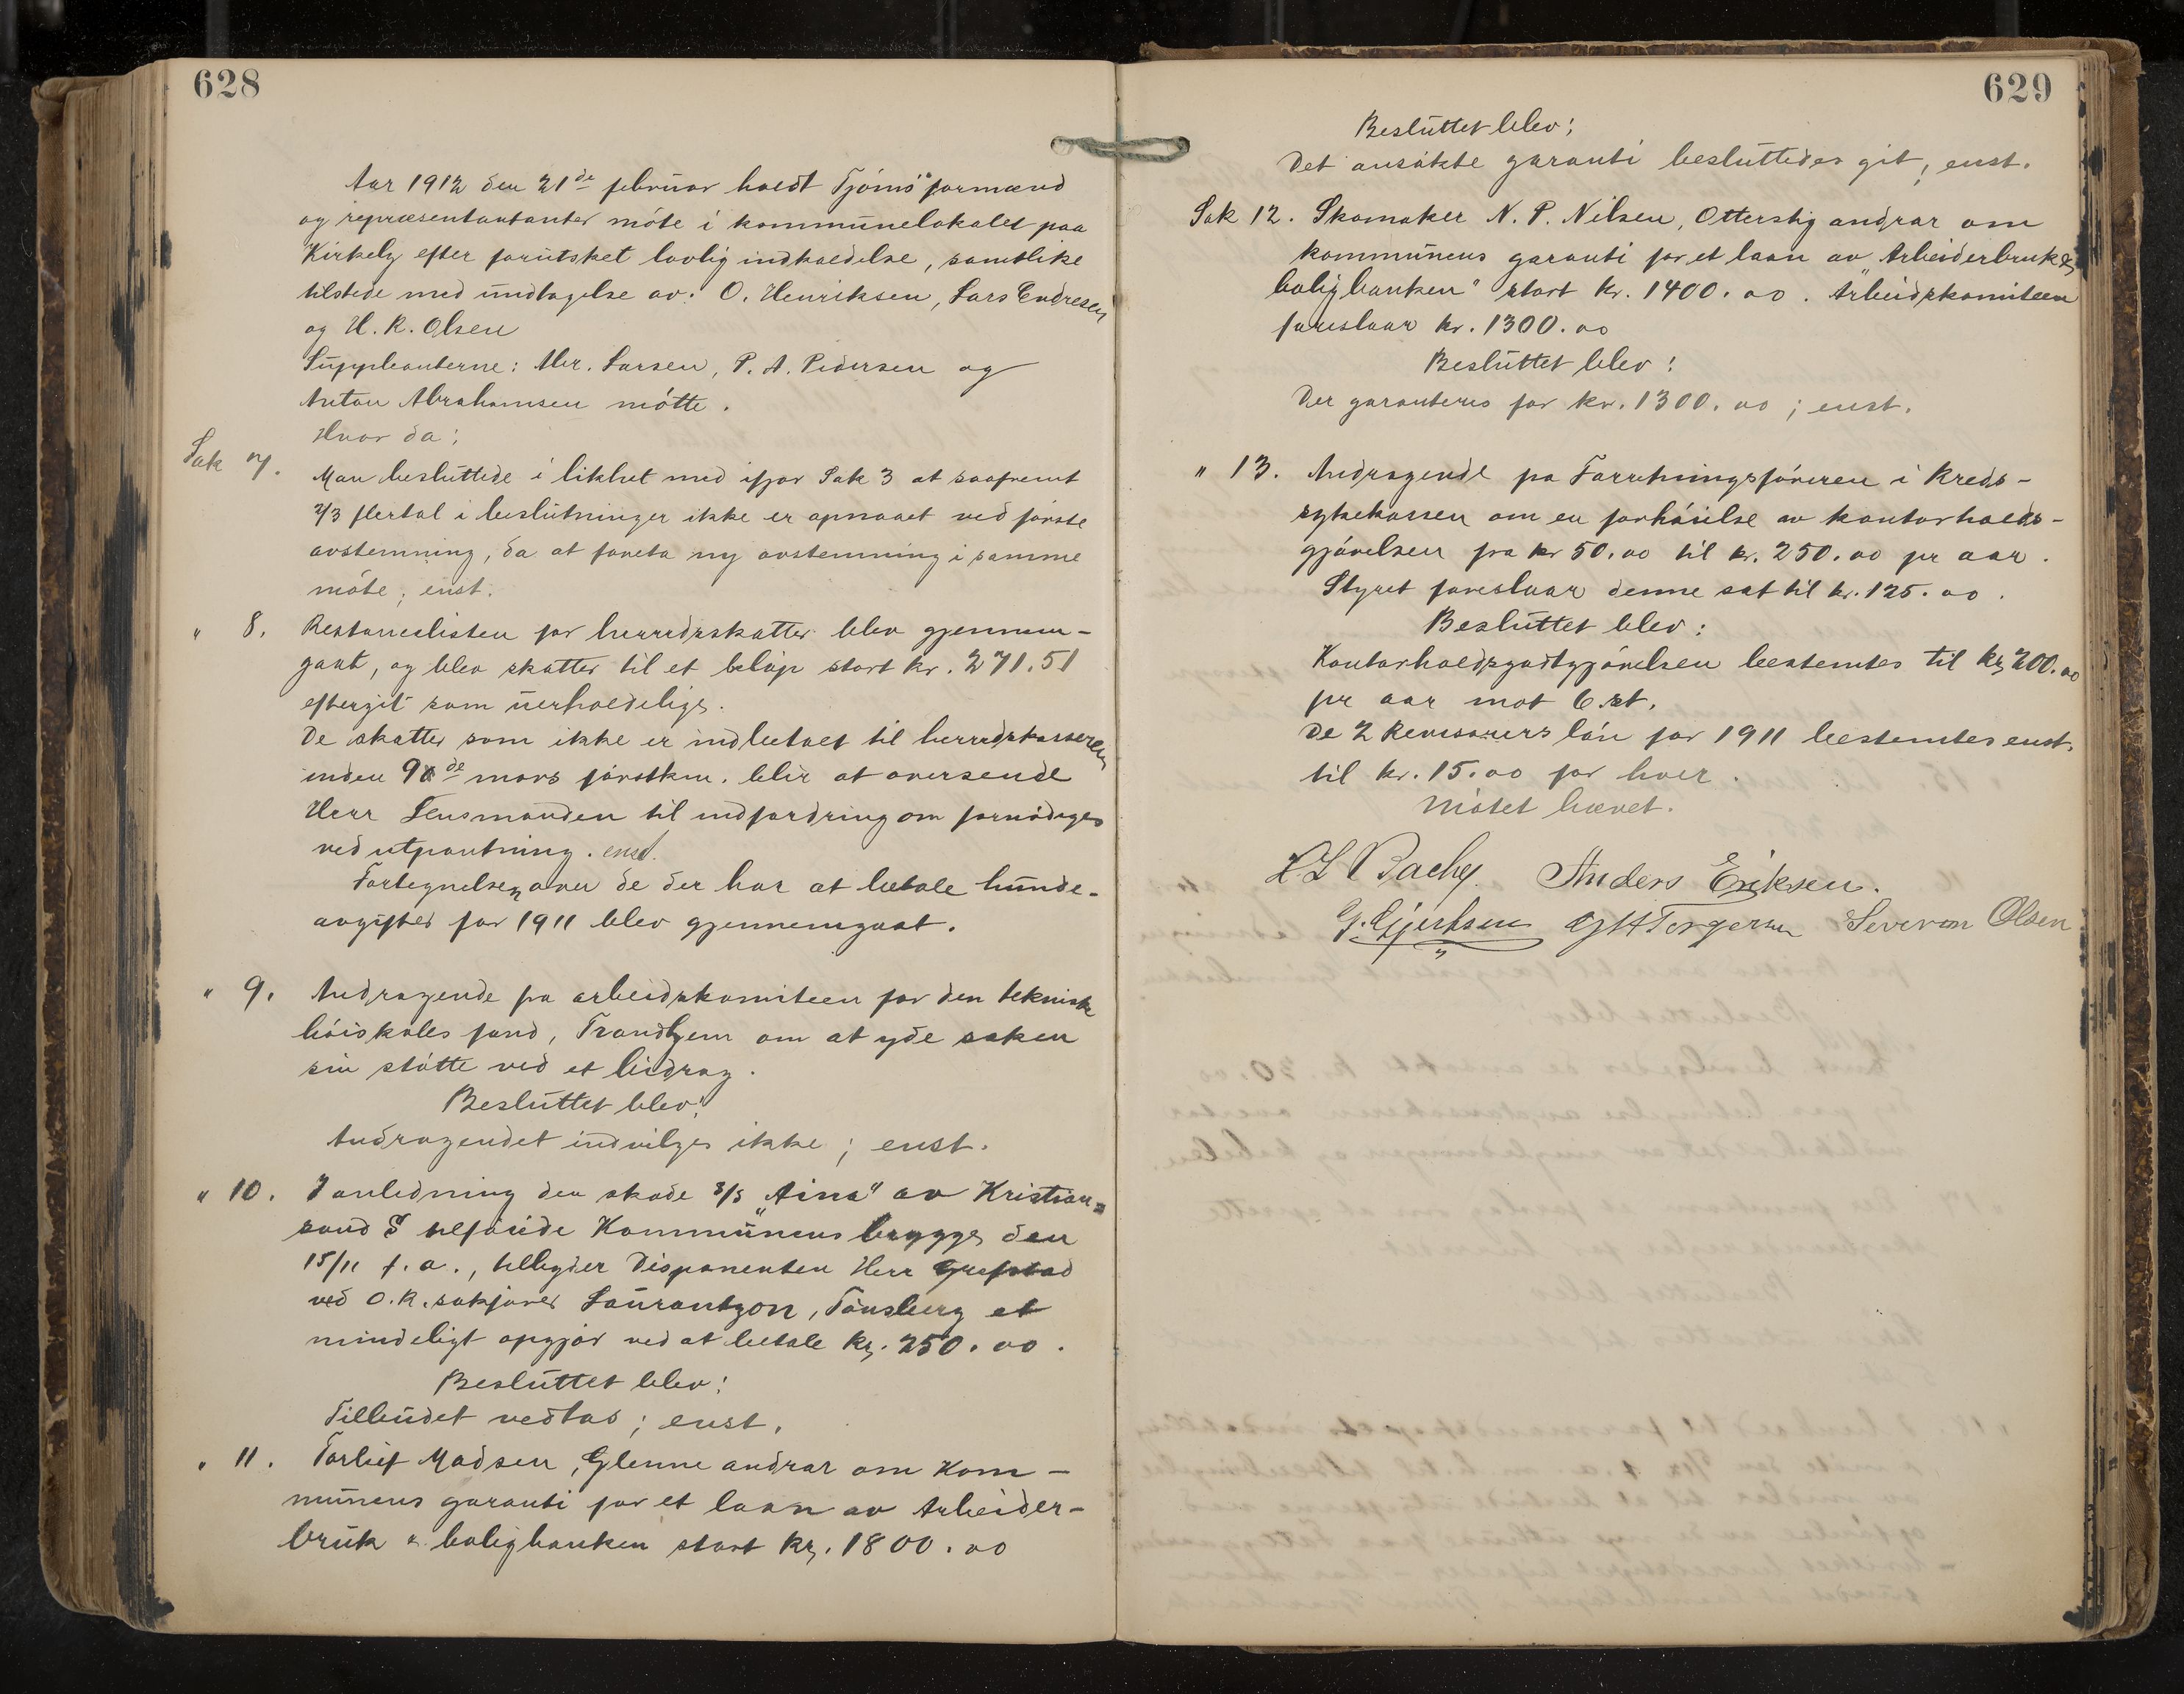 628
Aar 1912 den 21de februar holdt Tjømø formænd
og repræsentantanter møte i kommunelokalet paa
Kirkely efter forutsket lovlig indkaldelse, samtlike
tilstede med undtagelse av: O. Henriksen, Lars Endresen
og H. R. Olsen
Suppleanterne: Abr. Larsen, P. A. Pedersen og
Anton Abrahamsen møtte.
Hvor da:
Sak 7. Man besluttede i likhet med ifjor Sak 3 at saafremt
2/3 flertal i beslutninger ikke er opnaaet ved første
avstemning, da at foreta ny avstemning i samme
møte; enst.
" 8. Restanselisten for herredsskatter blev gjennem-
gaat, og blev skatter til et beløp stort kr. 271.51
eftergit som uerholdelige.
De skatter som ikke er indbetalt til herredskasseren
inden 9de mars førstkm. blir at oversende
Herr Lensmanden til indfordring om fornødiges
ved utpantning. enst.
Fortegnelsen over de der har at betale hunde-
avgifter for 1911 blev gjennemgaat.
" 9. Andragende fra arbeidskomiteen for den tekniske
høiskoles fond, Trondhjem om at yde saken
sin støtte ved et bidrag.
Besluttet blev:
Andragendet indvilges ikke; enst.
" 10. I anledning den skade S/S "Aina" av Kristian-
sand S tilføiede Kommunens brygge den
15/11 f. a., tilbyder Disponenten Herr Grefstad
ved O.R. sakfører Laurantzon, Tønsberg et
mindeligt opgjør ved at betale kr. 250.00.
Besluttet blev:
Tilbudet vedtas; enst.
" 11. Torleif Madsen, Glenne andrar om Kom-
munens garanti for et laan av Arbeider-
bruk & boligbanken stort kr. 1800.00
629
Besluttet blev:
Det ansøkte garanti besluttedes git, enst.
Sak 12. Skomaker N. P. Nilsen, Otterstig andrar om
kommunens garanti for et laan av "Arbeiderbruk &
boligbanken" stort kr. 1400.00. Arbeidskomiteen
foreslaar kr. 1300.00
Besluttet blev:
Der garanteres for kr. 1300.00; enst.
" 13. Andragende fra Forretningsføreren i Kreds-
sykekassen om en forhøielse av kontorholds-
gjørelsen fra kr 50.00 til kr. 250.00 pr aar.
Styret foreslaar denne sat til kr. 125.00.
Besluttet blev:
Kontorholdsgodtgjørelsen bestemtes til kr 200.00
pr aar mot 6 st.
De 2 Revisorers løn for 1911 bestemtes enst.
til kr. 15.00 for hver.
Møtet hævet.
Anders Eriksen.
G. Gjertsen Severin Olsen